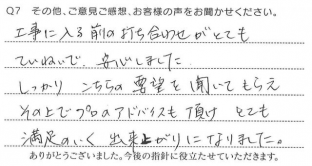 Q7 その他、ご意見ご感想、お客様の声をお聞かせください。
工事に入る前の打ち合わせがとても
ていねいで、安心しました
しっかり こちらの要望を聞いてもらえ
その上でプロのアドバイスも頂け とても
満足のいく 出来上がりになりました。
ありがとうございました。今後の指針に役立たせていただきます。